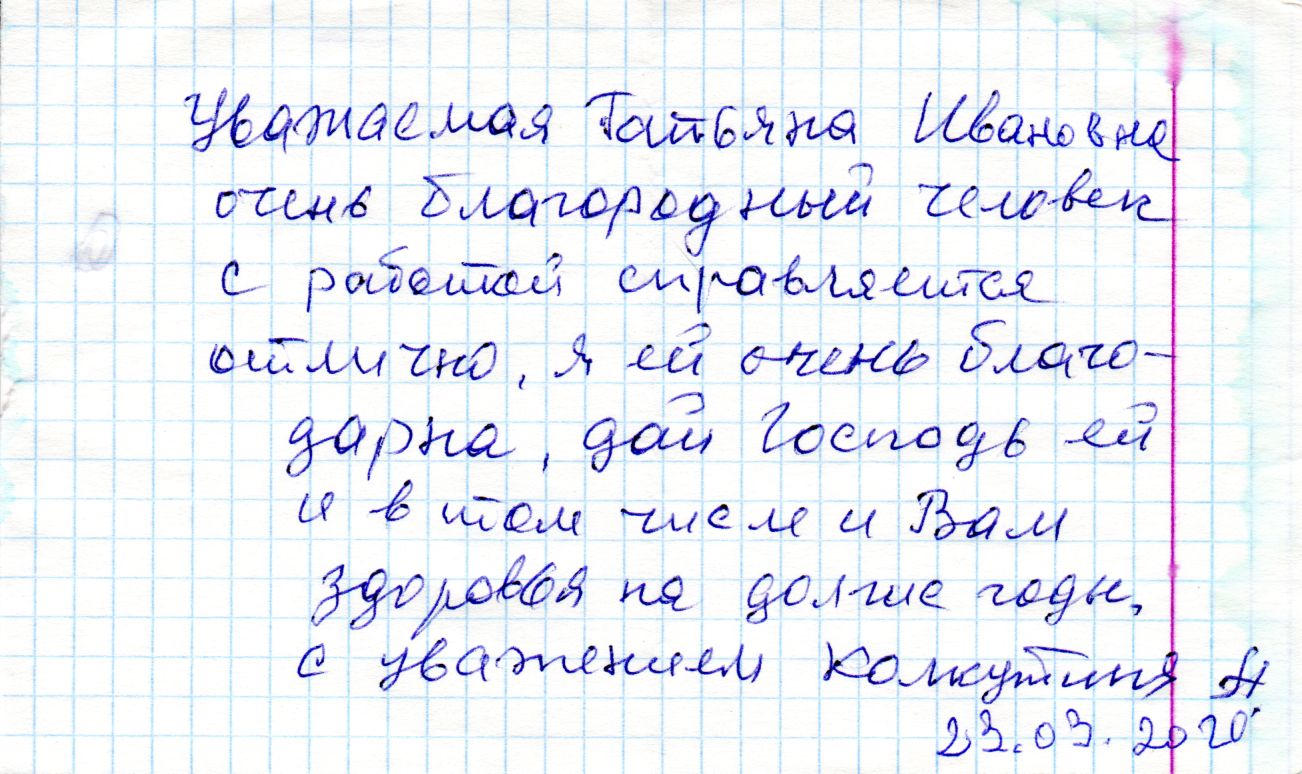 Уважаемая Татьяна Ивановна
очень благородный человек
с работой справляется
отлично, я ей очень благо-
дарна, дай Господь ей
и в том числе и Вам
здоровья на долгие годы,
с уважением Колкутина А.
23.03.2020